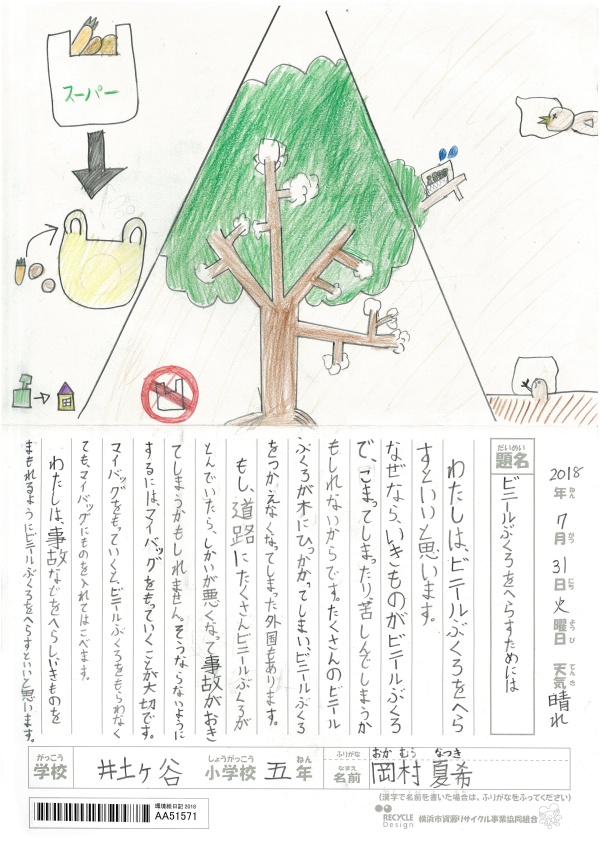 スーパー
2018年 ねん 7月 がつ 31日 にち 火曜日 ようび 天気 てんき 晴れ
だいめい
題名
ビニールぶくろをへらすためには
わたしは、ビニールぶくろをへら
すといいと思います。
なぜなら、いきものがビニールぶくろ
で、こまってしまったり苦しんでしまうか
もしれないからです。たくさんのビニール
ぶくろが木にひっかかってしまい、ビニールぶくろ
をつかえなくなってしまった外国もあります。
もし、道路にたくさんビニールぶくろが
とんでいたら、しかいが悪くなって事故がおき
てしまうかもしれません。そうならないように
するには、マイバッグをもっていくことが大切です。
マイバッグをもっていくと、ビニールぶくろをもらわなく
ても、マイバッグにものを入れてはこべます。
わたしは、事故などをへらしいきものを
まもれるようにビニールぶくろをへらすといいと思います。
がっこう
学校
井土ヶ谷
しょうがっこう
小学校
五
ねん
年
ふりがな
おか むら なつき
なまえ
名前
岡村 夏希
(漢字で名前を書いた場合は、ふりがなをふってください)
環境絵日記 2018
AA51571
RECYCLE
Design
横浜市資源リサイクル事業協同組合